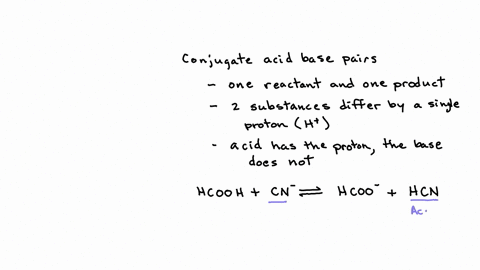 Conjugate acid base pairs
- one reactant and one product
- 2 substances differ by a single
proton (H⁺)
- acid has the proton, the base
does not
HCOOH + CN⁻ ⇌ HCOO⁻ + HCN
Ac.